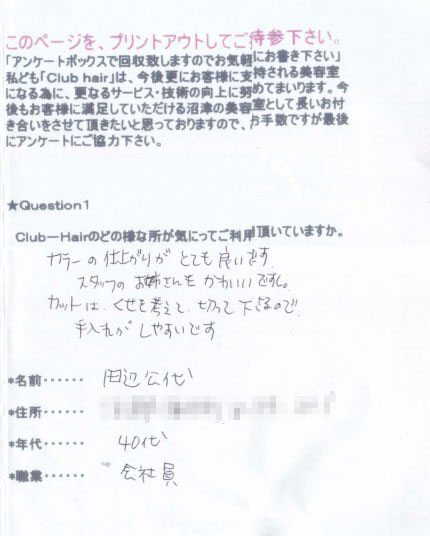 このページを、プリントアウトしてご持参下さい。
「アンケートボックスで回収致しますのでお気軽にお書き下さい」
私ども「Club hair」は、今後更にお客様に支持される美容室
になる為に、更なるサービス・技術の向上に努めてまいります。今
後もお客様に満足していただける沼津の美容室として長いお付
き合いをさせて頂きたいと思っておりますので、お手数ですが最後
にアンケートにご協力下さい。
★Question1
Club－Hairのどの様な所が気にってご利用頂いていますか。
カラーの仕上がりが とても 良いです
スタッフの お姉さんも かわいいですし。
カットは、くせを考えて 切って 下さるので
手入れが しやすいです
*名前‥‥‥ 田辺公代
*住所‥‥‥
*年代‥‥‥ 40代
*職業‥‥‥ 会社員